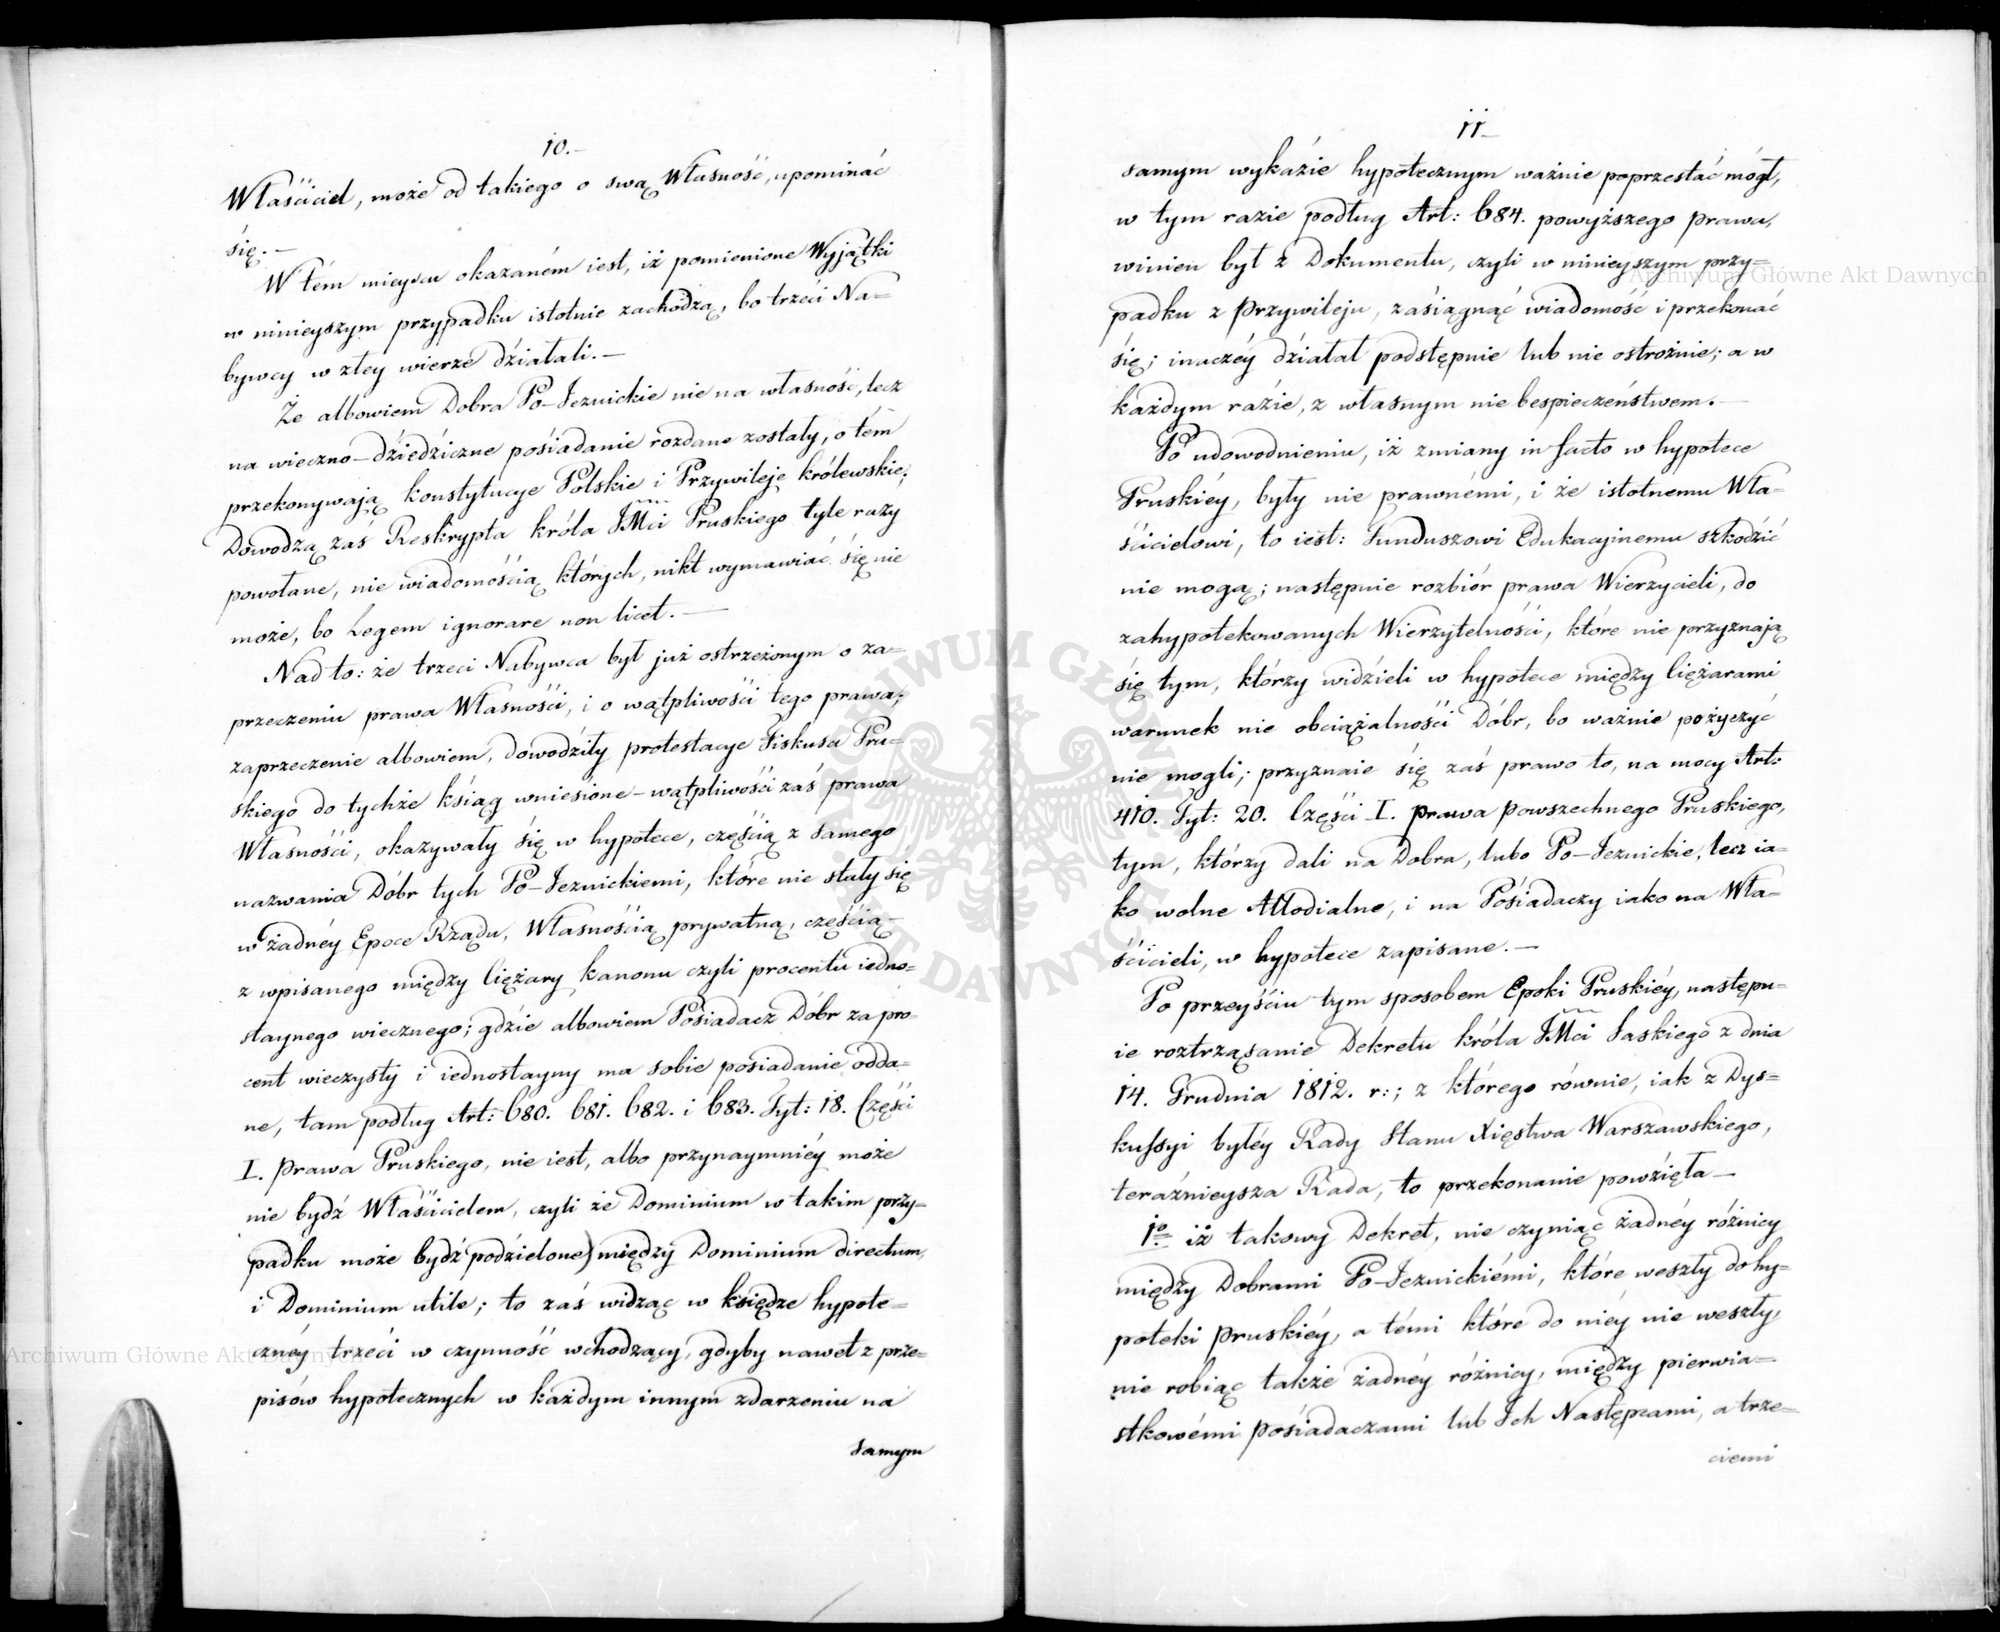 10.–
Właściciel, może od takiego o swą Własność, upominać
się.–
W tém mieyscu okazaném iest, iż pomienione Wyjątki
w ninieyszym przypadku istotnie zachodzą, bo trzeci Na=
bywcy w złey wierze działali.–
Że albowiem Dobra Po-Jeznickie nie na własność, lecz
na wieczno-dziedziczne posiadanie rozdane zostały, o tém
przekonywają konstytucye Polskie i Przywileje królewskie;
Dowodzą zaś Reskrypta króla JMci Pruskiego tyle razy
powołane, nie wiadomością których, nikt wymawiać się nie
może, bo Legem ignorare non licet.–
Nad to: że trzeci Nabywca był już ostrzeżonym o za=
przeczeniu prawa Własności, i o wątpliwości tego prawa;
zaprzeczenie albowiem, dowodziły protestacye Fiskusa Pru=
skiego do tychże ksiąg wniesione – wątpliwości zaś prawa
Własności, okazywały się w hypotece, częścią z samego
nazwania Dóbr tych Po-Jeznickiemi, które nie stały się
w żadnéy Epoce Rządu, Własnością prywatną, częścią–
z wpisanego między Ciężary kanonu czyli procentu iedno=
staynego wiecznego; gdzie albowiem Posiadacz Dóbr za pro
cent wieczysty i iednostayny ma sobie posiadanie odda=
ne, tam podług Art: 680. 681. 682. i 683. Tyt: 18. Części
I. Prawa Pruskiego, nie iest, albo przynaymniéy może
nie bydź Właścicielem, czyli że Dominium w takim przy=
padku może bydź (podzielone) między Dominium directum,
i Dominium utile; to zaś widząc w księdze hypote=
cznéy trzeci w czynność wchodzący, gdyby nawet z prze=
pisów hypotecznych w każdym innym zdarzeniu na
samym
11–
samym wykazie hypotecznym ważnie poprzestać mógł,
w tym razie podług Art: 684. powyższego prawa,
winien był z Dokumentu, czyli w ninieyszym przy=
padku z Przywileju, zasiągnąć wiadomość i przekonać
się; inaczéy działał podstępnie lub nie ostrożnie; a w
każdym razie, z własnym nie bespieczeństwem.–
Po udowodnieniu, iż zmiany in facto w hypotece
Pruskiéy, były nie prawnémi, i że istotnemu Wła=
ścicielowi, to iest: Funduszowi Edukacyjnemu szkodzić
nie mogą; następnie rozbiór prawa Wierzycieli, do
zahypotekowanych Wierzytelności, które nie przyznają
się tym, którzy widzieli w hypotece między Ciężarami
warunek nie obciążalności Dóbr, bo ważnie pożyczyć
nie mogli; przyznaie się zaś prawo to, na mocy Art:
410. Tyt: 20. Części I. prawa Powszechnego Pruskiego,
tym, którzy dali na Dobra, lubo Po-Jeznickie, lecz ia=
ko wolne Allodialne, i na Posiadaczy iako na Wła=
ścicieli, w hypotece zapisane.–
Po przeyściu tym sposobem Epoki Pruskiéy, następu=
ie roztrząsanie Dekretu króla JMci Saskiego z dnia
14. Grudnia 1812. r:; z którego równie, iak z Dys=
kussyi byłéy Rady Stanu Xięstwa Warszawskiego,
teraźnieysza Rada, to przekonanie powzięła–
1º iż takowy Dekret, nie czyniąc żadnéy różnicy
między Dobrami Po-Jeznickiémi, które weszły do hy=
poteki Pruskiéy, a témi które do niéy nie weszły,
nie robiąc także żadnéy różnicy, między pierwia=
stkowémi posiadaczami lub Ich Następcami, a trze=
ciemi
Archiwum Główne Akt Dawnych
Archiwum Główne Akt Dawnych
ARCHIWUM GŁÓWNE AKT DAWNYCH